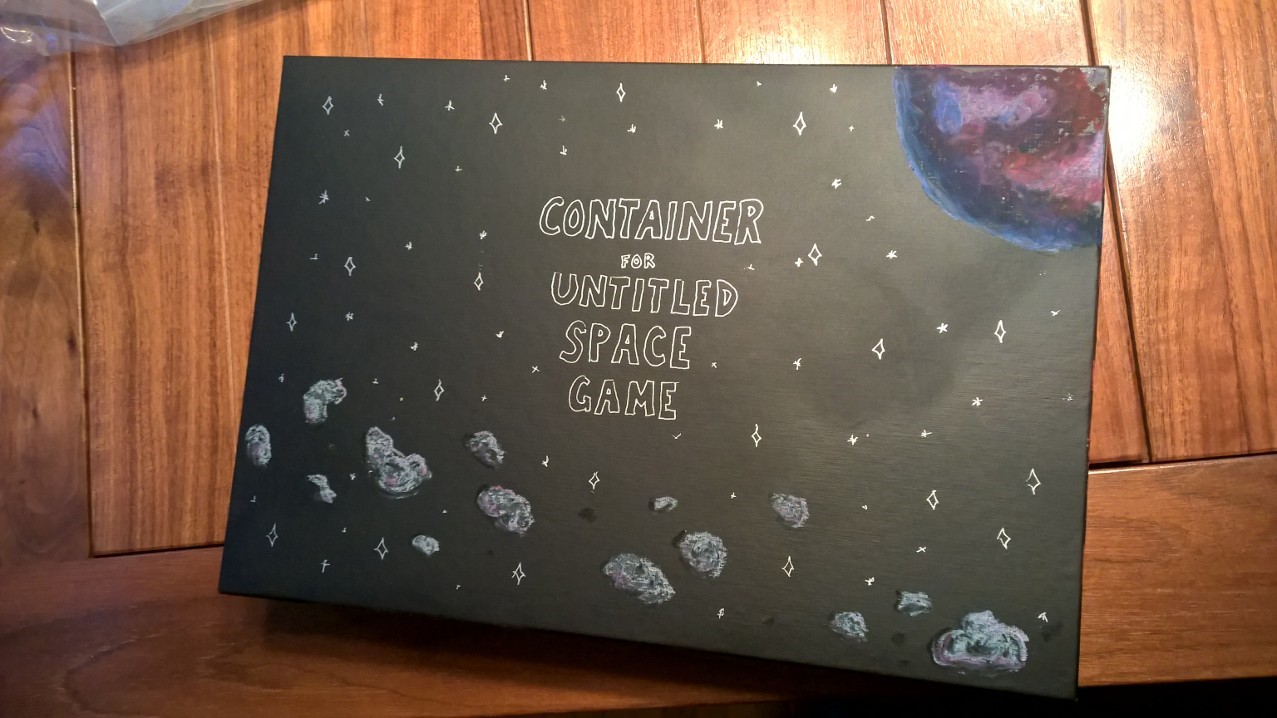 CONTAINER
FOR
UNTITLED
SPACE
GAME